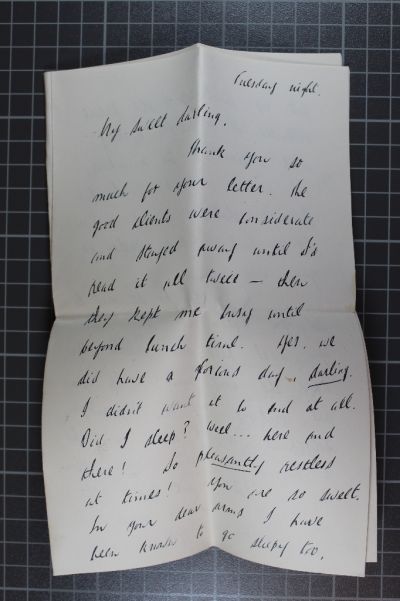 Tuesday night.
My sweet darling,
Thank you so
much for your letter. The
good clients were considerate
and stayed away until I'd
read it all twice — then
they kept me busy until
beyond lunch time. Yes, we
did have a glorious day, darling.
I didn't want it to end at all.
Did I sleep? Well... here and
there! So pleasantly restless
at times! You are so sweet.
In your dear arms I have
been known to go sleepy too.